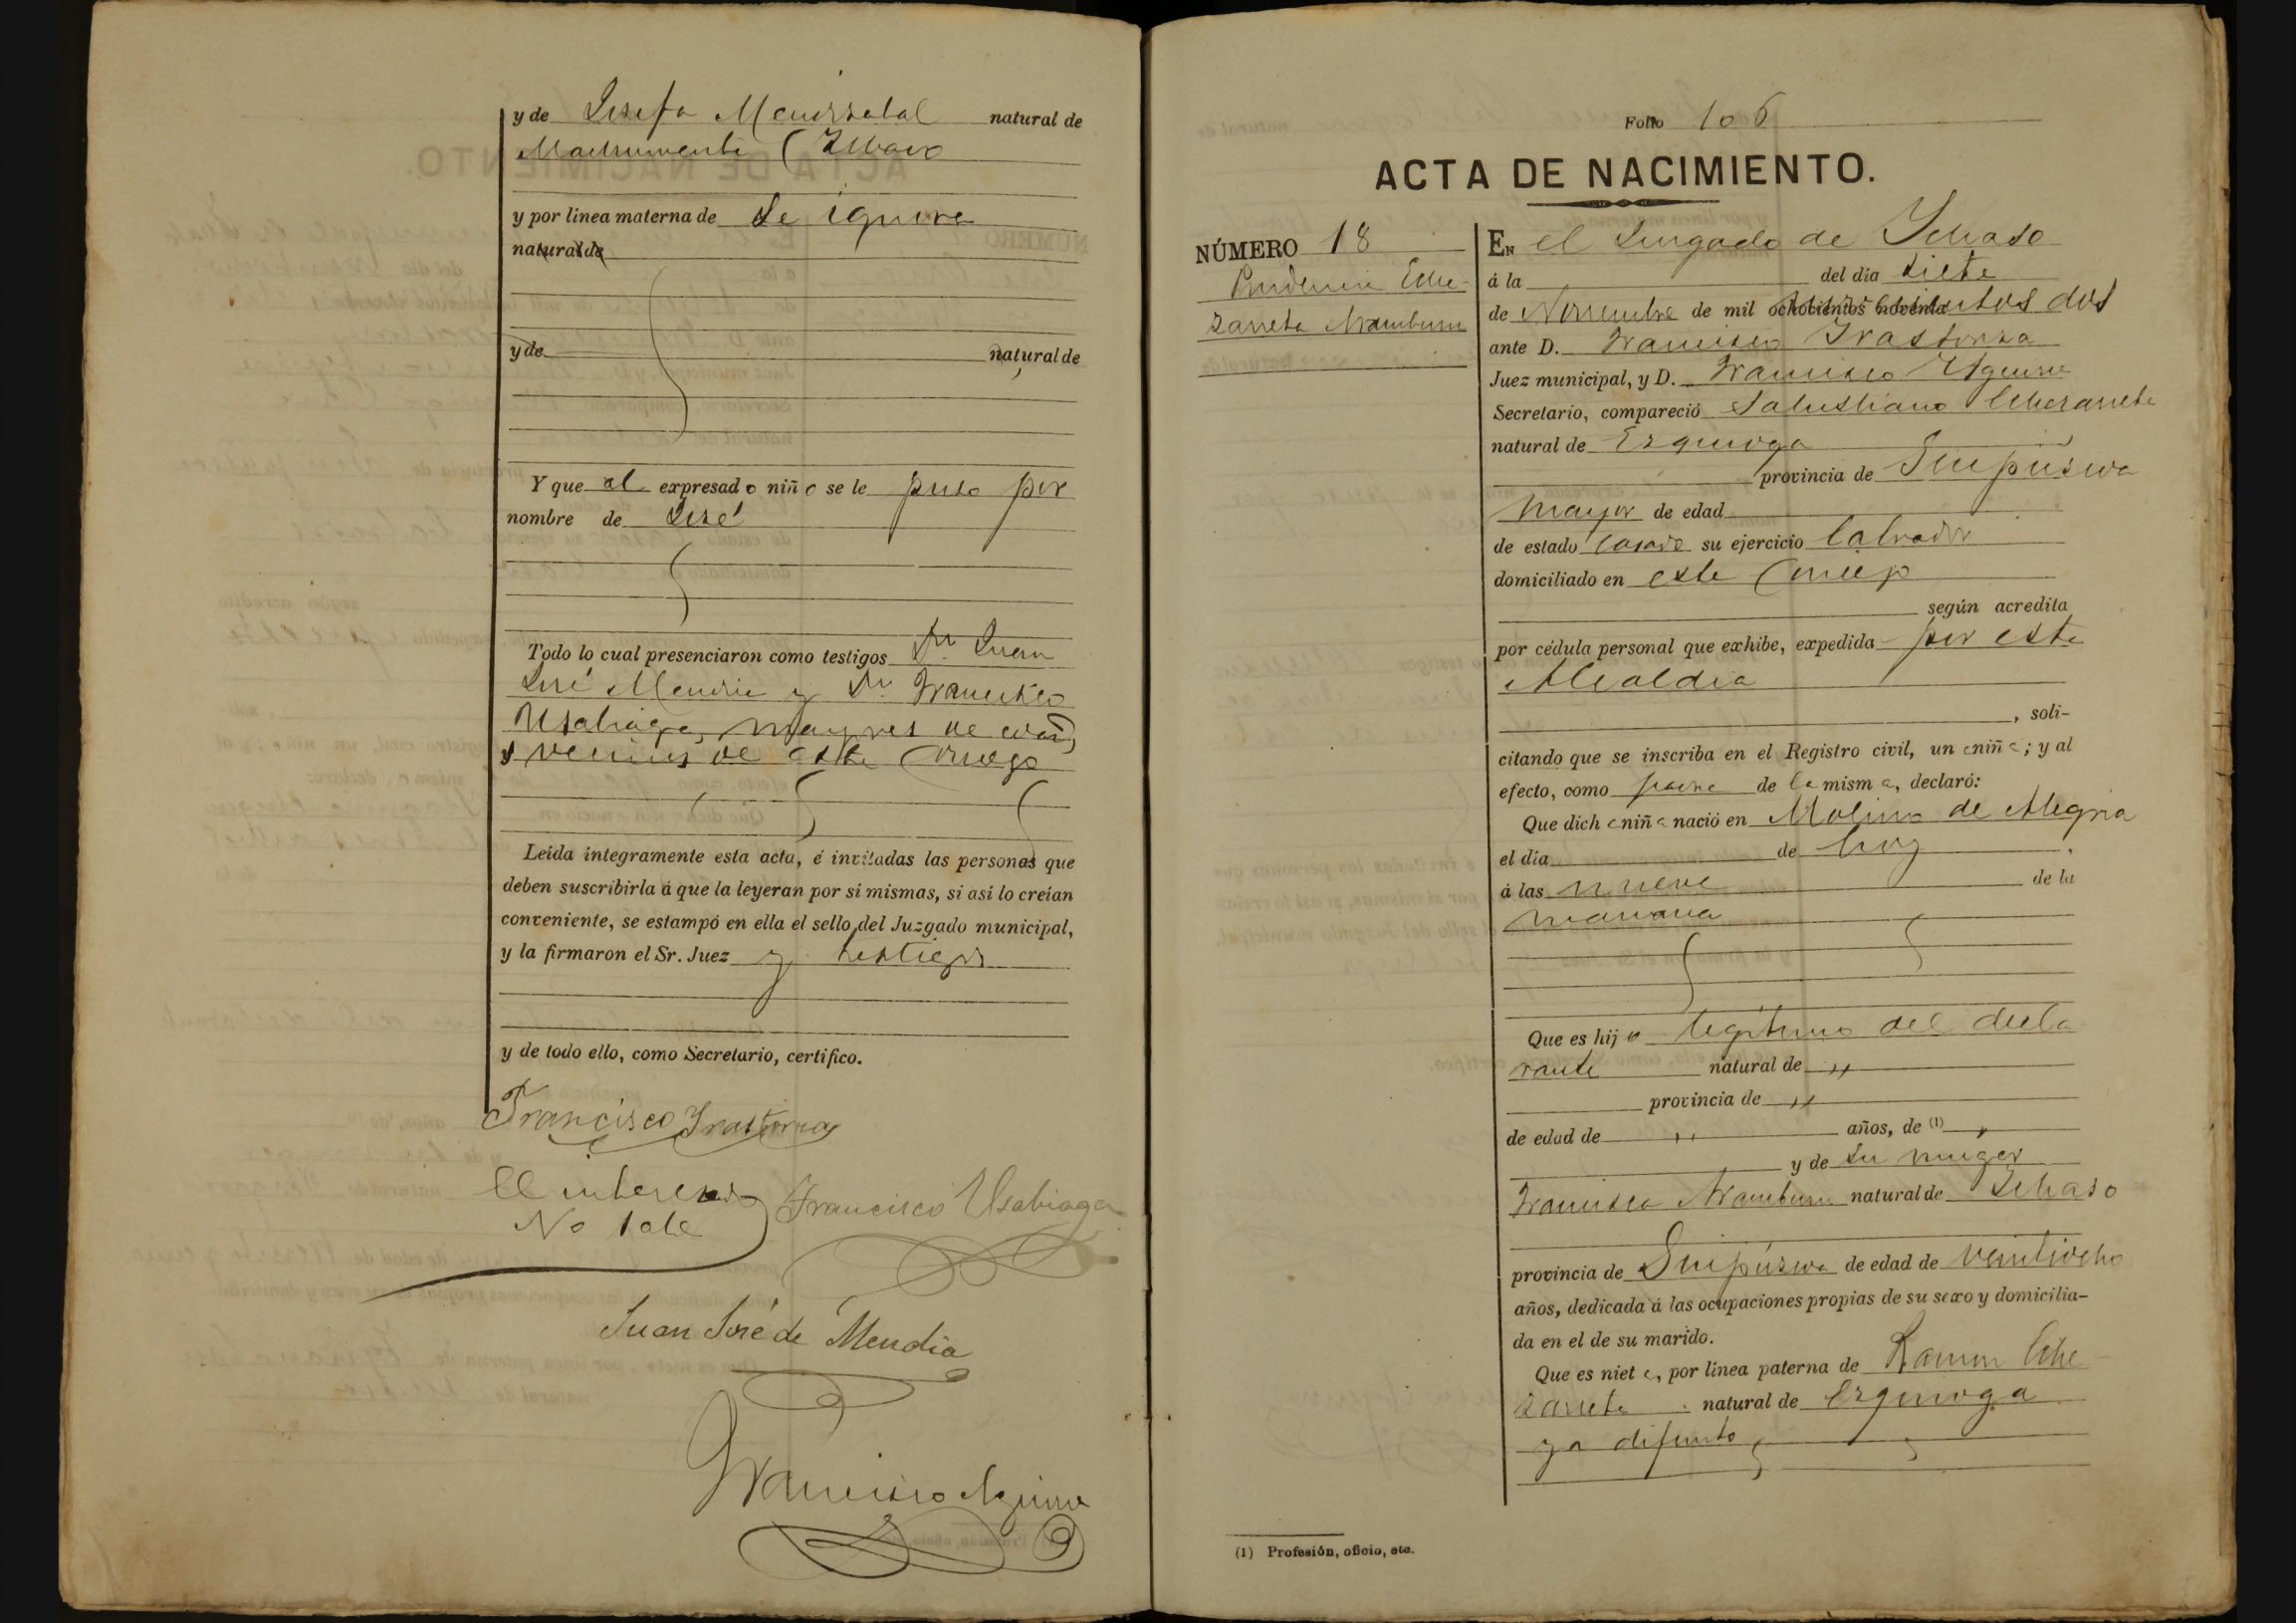 y de Josefa Mendizabal natural de
(Ichaso
y por linea materna de Se ignora
natural de
y de natural de
Y que al expresado niño se le puso por
nombre de José
Todo lo cual presenciaron como testigos Dn. Juan
José Mendia y Dn. Francisco
Usabiaga, mayores de edad,
y vecinos de este Concejo
Leída integramente esta acta, é invitadas las personas que
deben suscribirla á que la leyeran por sí mismas, si así lo creían
conveniente, se estampó en ella el sello del Juzgado municipal,
y la firmaron el Sr. Juez y testigos
y de todo ello, como Secretario, certifico.
Francisco Irastorza
El interesado Francisco Usabiaga
No sabe
Juan José de Mendia
Francisco Aguirre
Folio 106
ACTA DE NACIMIENTO.
NÚMERO 18
Prudencia Eche-
zarreta Aramburu
En el Juzgado de Ichaso
á la del dia siete
de Noviembre de mil ochocientos noventa novecientos dos
ante D. Francisco Irastorza
Juez municipal, y D. Francisco Aguirre
Secretario, compareció Salustiano Echezarreta
natural de Ezquioga
provincia de Guipúzcoa
mayor de edad
de estado casado su ejercicio labrador
domiciliado en este Concejo
según acredita
por cédula personal que exhibe, expedida por esta
Alcaldia
, soli-
citando que se inscriba en el Registro civil, una niña; y al
efecto, como padre de la misma, declaró:
Que dicha niña nació en Molino de Alegria
el dia de hoy
á las nueve de la
mañana
Que es hija legitimo del decla
rante natural de "
provincia de "
de edad de " años, de (1) "
y de su muger
Francisca Aramburu natural de Ichaso
provincia de Guipúzcoa de edad de veintiocho
años, dedicada á las ocupaciones propias de su sexo y domicilia-
da en el de su marido.
Que es nieta, por linea paterna de Ramon Eche
zarreta natural de Ezquioga
ya difunto
(1) Profesión, oficio, etc.